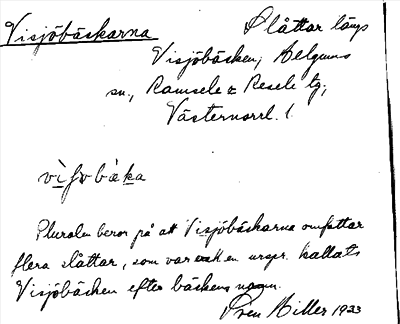 Visjöbäskarna
Slåttar längs
Visjöbäcken, Helgums
sn, Ramsele & Resele tg,
Västernorrl. l.
Pluralen beror på att Visjöbäskarna omfattar
flera slåttar, som var och en urspr. kallats
Visjöbäcken efter bäckens namn.
Hiller 1933